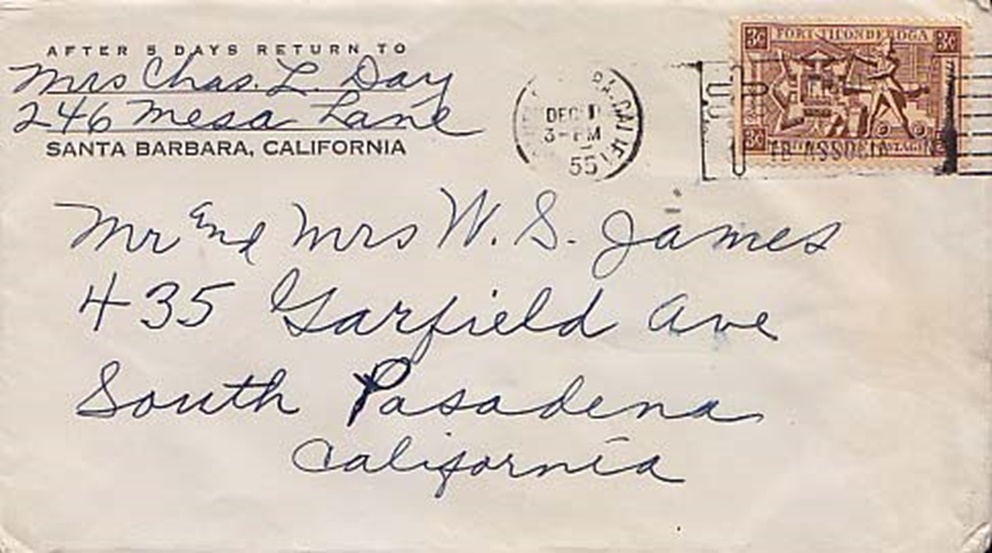 AFTER 5 DAYS RETURN TO
Mrs Chas. L. Day
246 Mesa Lane
SANTA BARBARA, CALIFORNIA
CALIF
DEC 1
3-PM
55
3¢ FORT TICONDEROGA 3¢
3¢
Mr and Mrs W. S. James
435 Garfield Ave
South Pasadena
California